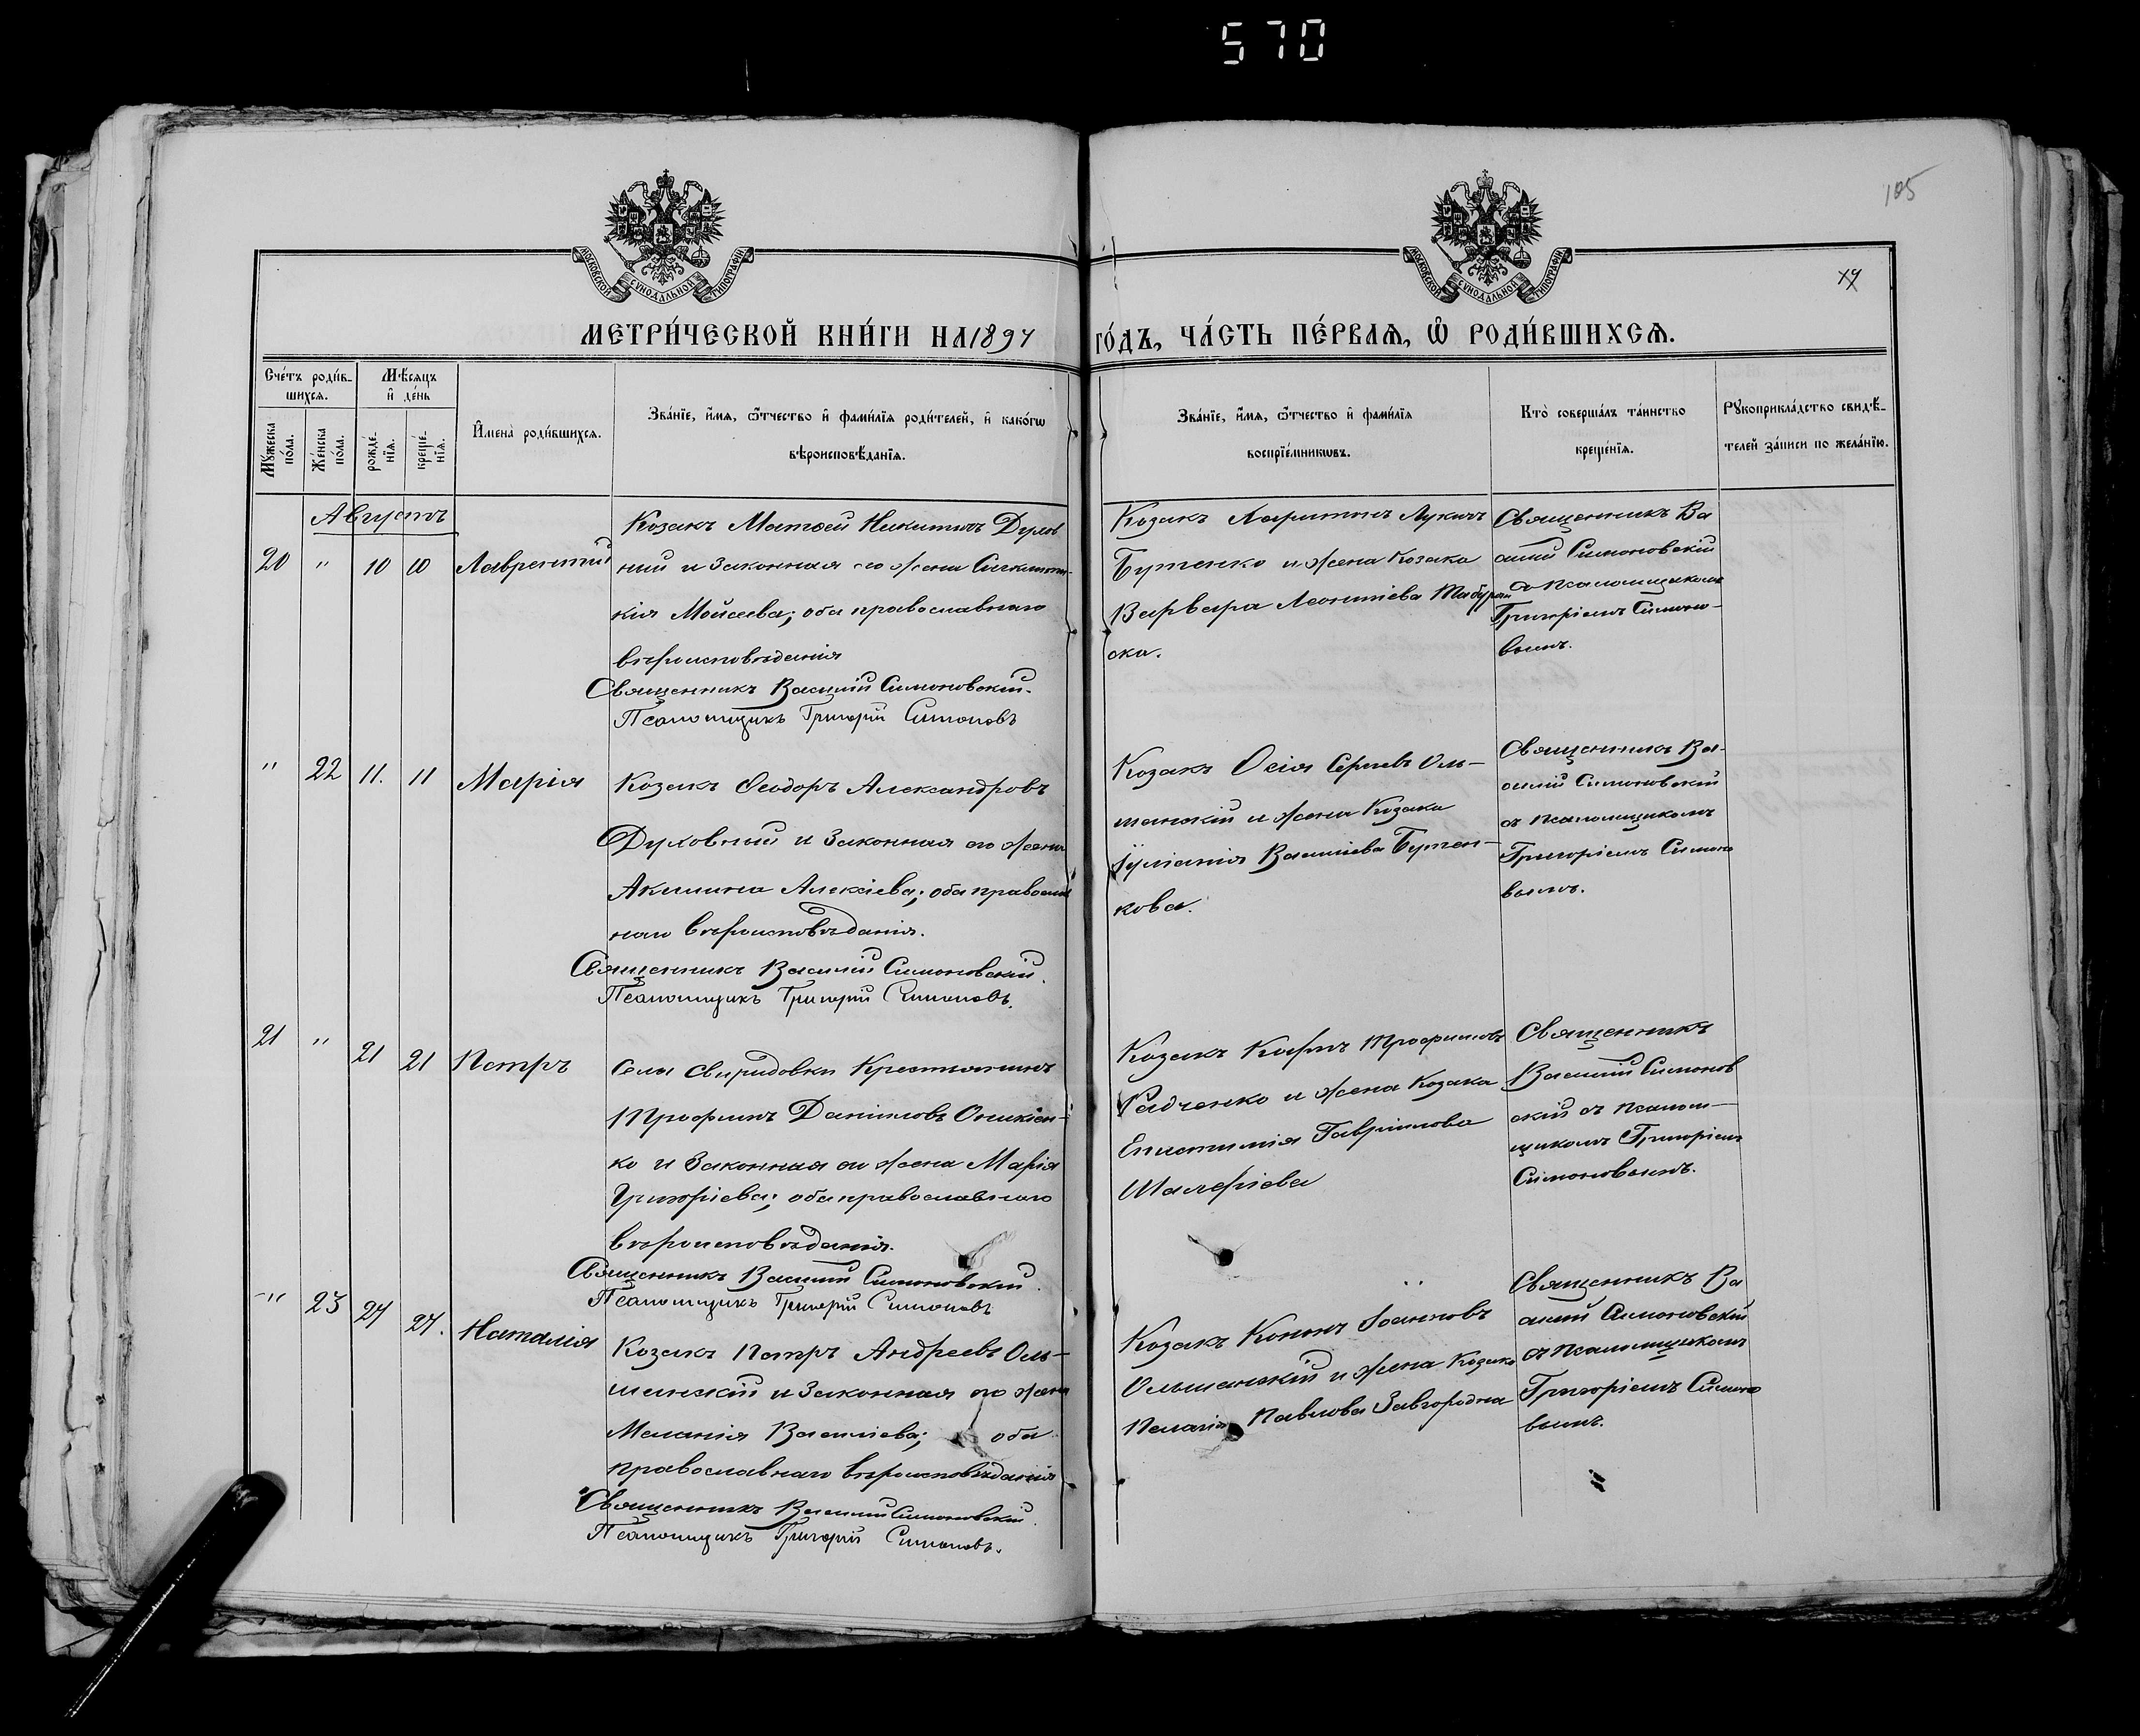 570
105
МОСКОВСКОЙ СѴНОДАЛЬНОЙ ТИПОГРАФІИ
МОСКОВСКОЙ СѴНОДАЛЬНОЙ ТИПОГРАФІИ
МЕТРИ́ЧЕСКОЙ КНИ́ГИ НА 1897 ГО́ДЪ, ЧА́СТЬ ПЕ́РВАЯ, Ѡ РОДИ́ВШИХСЯ.
Сче́тъ роди́в-
шихся.
Мꙋжеска по́ла.
Же́нска по́ла.
Мѣ́сяцъ и҆ де́нь
рожде́-
нїя.
креще́-
нїя.
И҆мена̀ роди́вшихся.
Зва́нїе, и҆́мя, ѻ҆́тчество и҆ фами́лїя роди́телей, и҆ како́гѡ
вѣроисповѣ́данїя.
Зва́нїе, и҆́мя, ѻ҆́тчество и҆ фами́лїя
воспрїе́мникѡвъ.
Кто̀ соверша́лъ та́инство
креще́нїя.
Рꙋкоприкла́дство свидѣ́-
телей за́писи по жела́нїю.
Августъ
20 " 10 10 Лаврентій
Козакъ Матѳей Никитинъ Духов
ный и законная его жена
кія Мойсеева; оба православнаго
вѣроисповѣданія
Священникъ Василій Симоновскій.
Псаломщикъ Григорій Симоновъ
Козакъ Харитонъ Лукинъ
Бутенко и жена козака
Варвара Леонтіева Табуран
ска.
Священникъ Ва
силій Симоновскій
съ псаломщикомъ
Григоріемъ Симоно-
вымъ.
" 22 11. 11 Марія
Козакъ Ѳеодоръ Александровъ
Духовный и законная его жена
Акилина Алексіева; оба православ
наго вѣроисповѣданія.
Священникъ Василій Симоновскій.
Псаломщикъ Григорій Симоновъ.
Козакъ Осія Сергіевъ Оль-
шанскій и жена козака
Іуліанія Василіева Бутен-
кова.
Священникъ Ва-
силій Симоновскій
съ псаломщикомъ
Григоріемъ Симоно
вымъ.
21 " 21 21 Петръ
Села Свиридовки Крестьянинъ
Трофимъ Даніиловъ Оникіен-
ко и законная его жена Марія
Григоріева; оба православнаго
вѣроисповѣданія.
Священникъ Василій Симоновскій.
Псаломщикъ Григорій Симоновъ
Козакъ Карпъ Трофимовъ
Радченко и жена козака
Епистимія Гавріилова
Шалфіева
Священникъ
Василій Симонов
скій съ псалом-
щикомъ Григоріемъ
Симоновымъ.
" 23 27 27. Наталія
Козакъ Петръ Андреевъ Оль-
шанскій и законная его жена
Меланія Василіева; оба
православнаго вѣроисповѣданія
Священникъ Василій Симоновскій.
Псаломщикъ Григорій Симоновъ.
Козакъ Кононъ Іоанновъ
Ольшанскій и жена козака
Пелагія Павлова Завгородна
Священникъ Ва
силій Симоновскій
съ псаломщикомъ
Григоріемъ Симоно
вымъ.